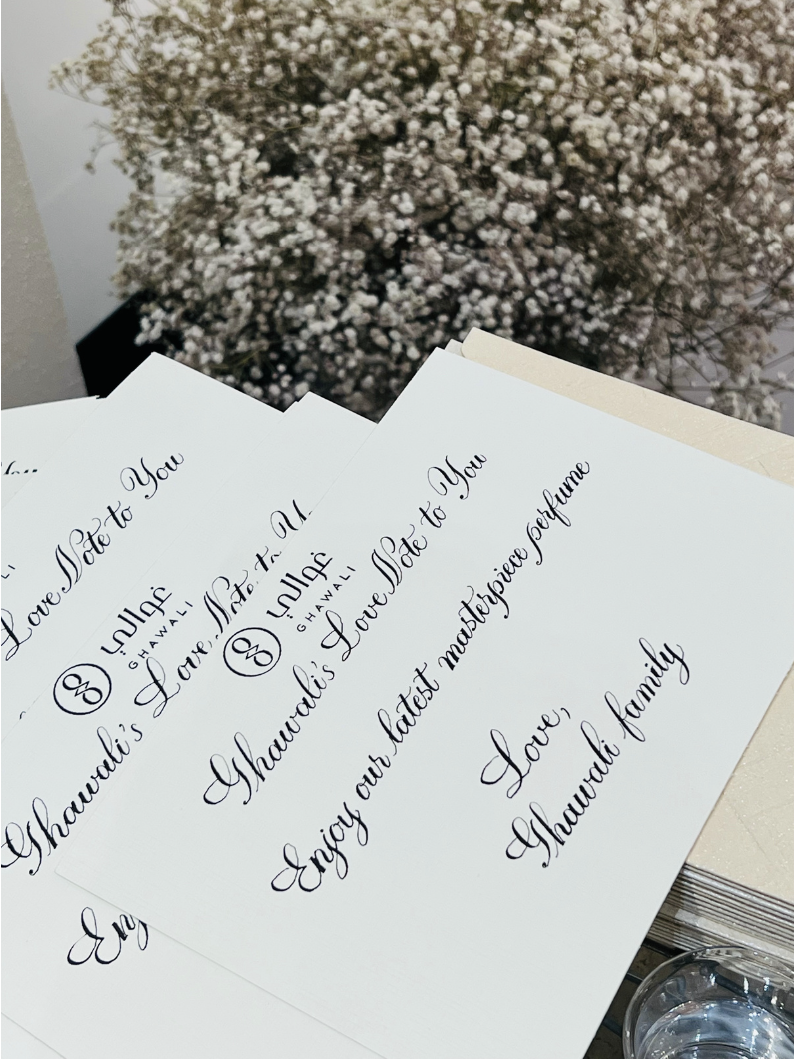 غوالي
GHAWALI
Ghawali's Love Note to You
Enjoy our latest masterpiece perfume
Love,
Ghawali family
غوالي
GHAWALI
Ghawali's Love Note to
Enj
Love Note to You